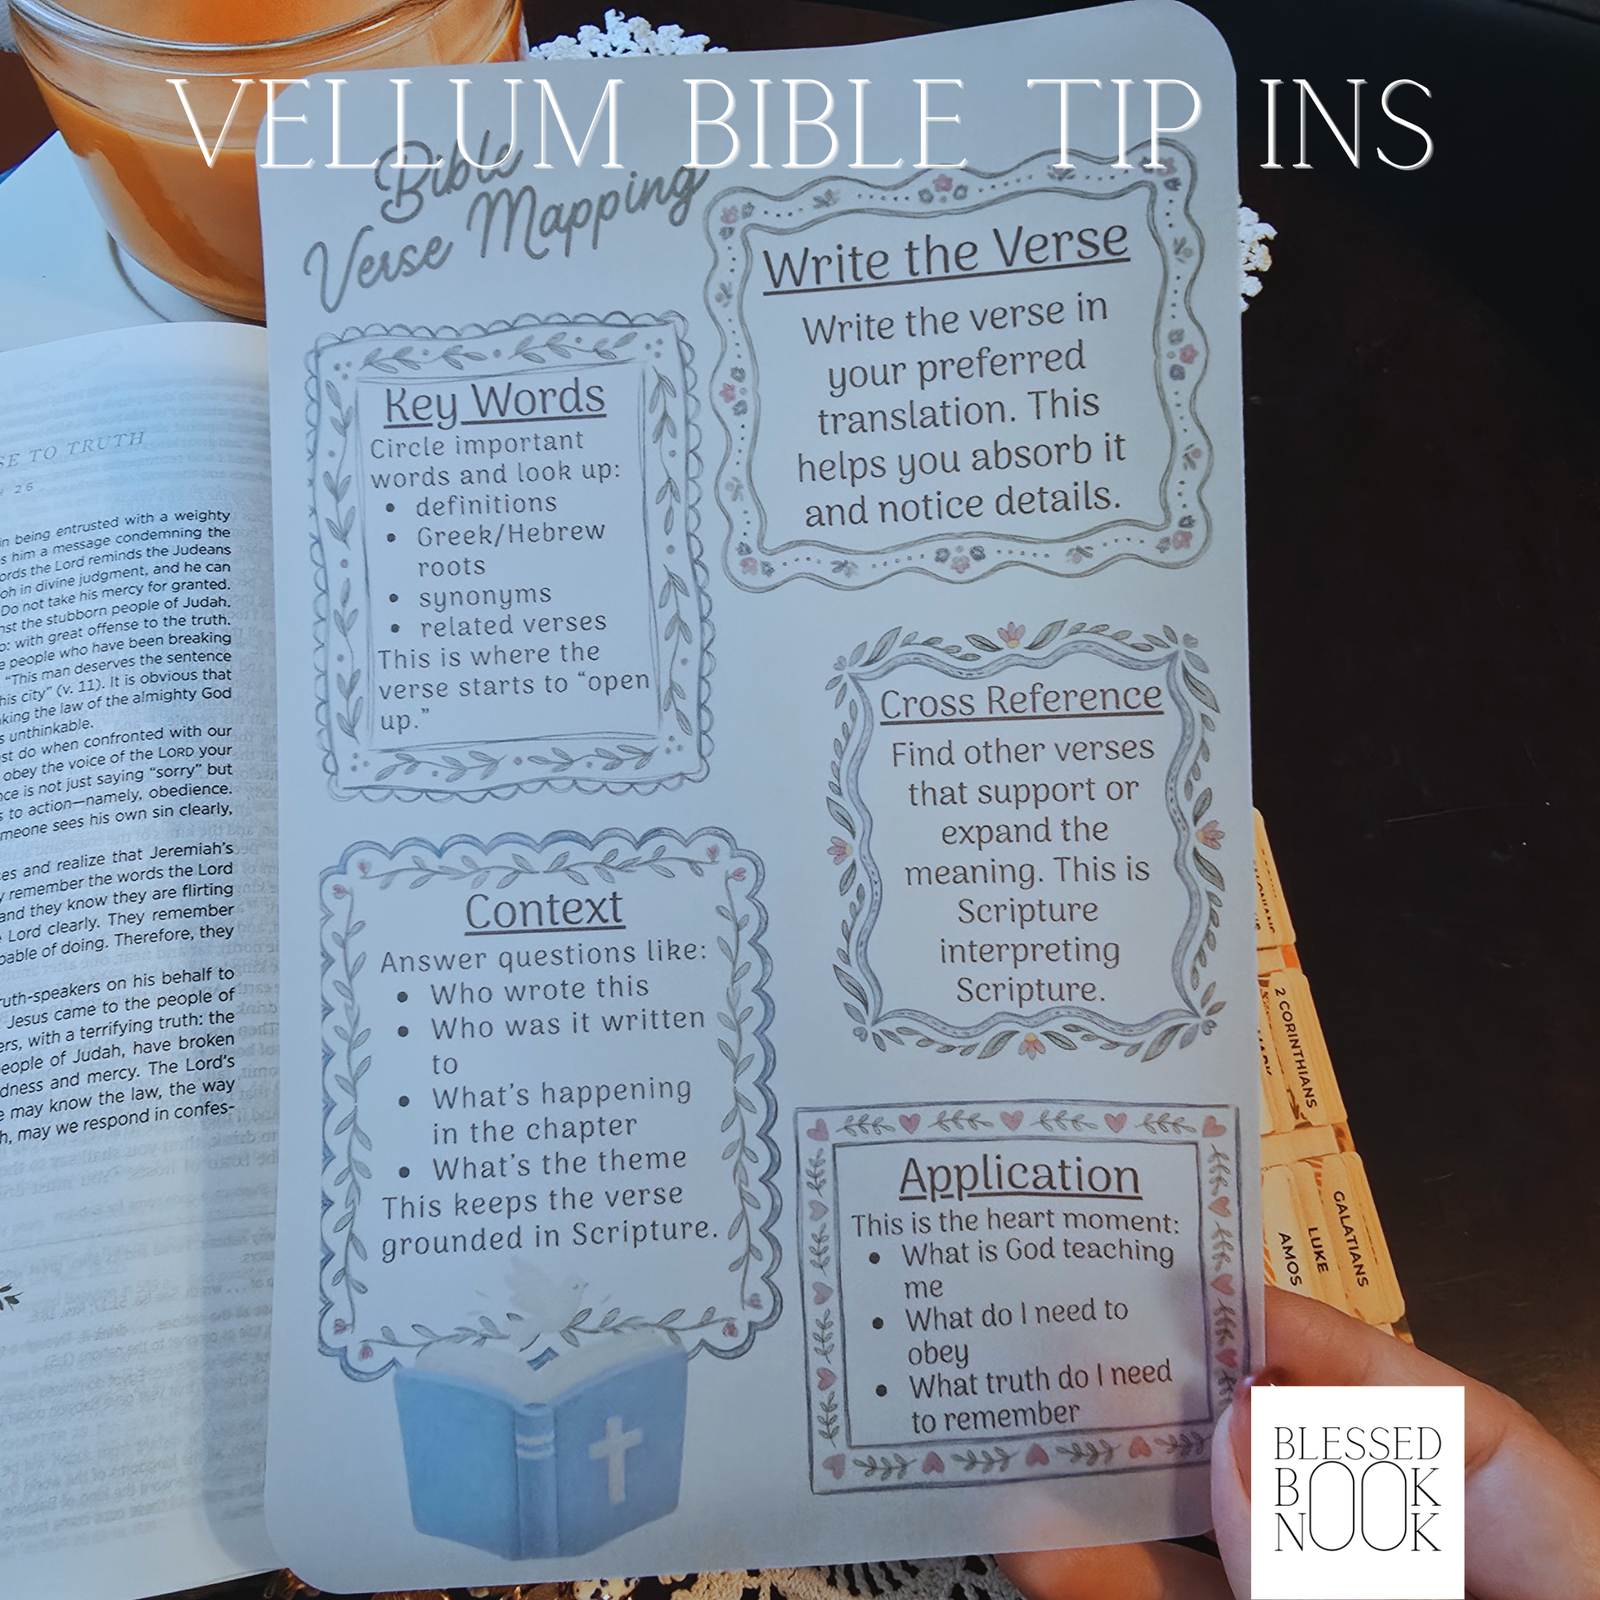 VELLUM BIBLE TIP INS
Bible
Verse Mapping
Write the Verse
Write the verse in
your preferred
translation. This
helps you absorb it
and notice details.
Key Words
Circle important
words and look up:
• definitions
• Greek/Hebrew
roots
• synonyms
• related verses
This is where the
verse starts to “open
up.”
Cross Reference
Find other verses
that support or
expand the
meaning. This is
Scripture
interpreting
Scripture.
Context
Answer questions like:
• Who wrote this
• Who was it written
to
• What’s happening
in the chapter
• What’s the theme
This keeps the verse
grounded in Scripture.
Application
This is the heart moment:
• What is God teaching
me
• What do I need to
obey
• What truth do I need
to remember
TO TRUTH
26
in being entrusted with a weighty
him a message condemning the
the Lord reminds the Judeans
in divine judgment, and he can
Do not take his mercy for granted.
the stubborn people of Judah.
with great offense to the truth.
people who have been breaking
“This man deserves the sentence
his city” (v. 11). It is obvious that
the law of the almighty God
unthinkable.
do when confronted with our
obey the voice of the LORD your
is not just saying “sorry” but
to action—namely, obedience.
sees his own sin clearly,
and realize that Jeremiah’s
remember the words the Lord
and they know they are flirting
Lord clearly. They remember
of doing. Therefore, they
on his behalf to
Jesus came to the people of
with a terrifying truth: the
of Judah, have broken
and mercy. The Lord’s
may know the law, the way
may we respond in confes-
2 CORINTHIANS
GALATIANS
LUKE
AMOS
BLESSED
BOOK
NOOK